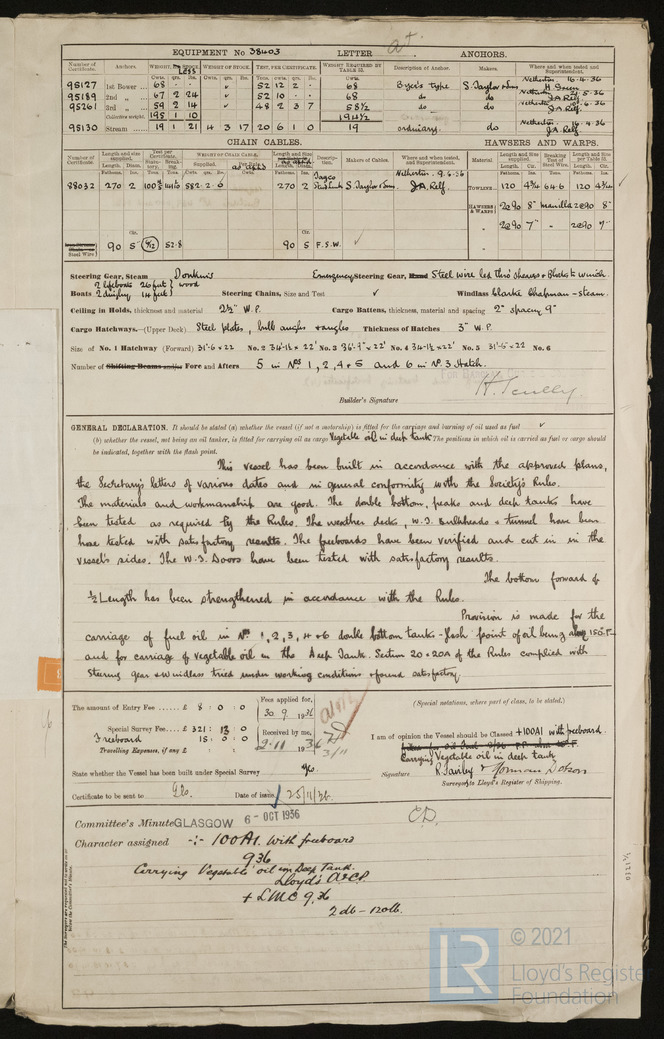 EQUIPMENT No 38403 LETTER at ANCHORS.
Number of Certificate. Anchors. WEIGHT, Less STOCK. WEIGHT OF STOCK. TEST, PER CERTIFICATE. WEIGHT REQUIRED BY TABLE 53. Description of Anchor. Makers. Where and when tested and Superintendent.
Cwts. qrs. lbs. Cwts. qrs. lbs. Tons. cwts. qrs. lbs. Cwts.
95127 1st Bower 68 - - 52 12 2 - 68 Byer's type S. Taylor & Sons Netherton 16-4-36
95189 2nd „ 67 2 24 52 10 - - 68 do do Netherton J.A. Relf
95261 3rd „ 59 2 14 48 2 3 7 58½ do do Netherton J.A. Relf
Collective weight. 195 1 10 194½
95130 Stream 19 1 21 4 3 17 20 6 1 0 19 ordinary. do Netherton 16-4-36 J.A. Relf
CHAIN CABLES. HAWSERS AND WARPS.
Number of Certificate. Length and size supplied. Test per Certificate. WEIGHT OF CHAIN CABLE. Description. Makers of Cables. Where and when tested, and Superintendent. Material Length and size supplied. Breaking Test of Steel Wire. Length and size per Table 53.
88032 270 2 582-2-6 270 2 Stud link S. Taylor & Sons. Netherton. 9.6.36 J.A. Relf. TOWLINE 120 4¾ 64.6 120 4¾
HAWSERS & WARPS 2@90 8" manilla 2@90 8"
„ 2@90 7" - 2@90 7"
Steel Wire 90 5 52.8 90 5 F.S.W.
Steering Gear, Steam Donkin's Emergency Steering Gear, Hand Steel wire led thro' sheaves & Blocks to winch.
Boats 2 lifeboats 26 feet 2 dinghy 14 feet } wood Steering Chains, Size and Test ✓ Windlass Clarke Chapman - steam.
Ceiling in Holds, thickness and material 2½" W.P. Cargo Battens, thickness, material and spacing 2" spacing 9"
Cargo Hatchways.—(Upper Deck) Steel plates, bulb angles & angles Thickness of Hatches 3" W.P.
Size of No. 1 Hatchway (Forward) 31'-6 x 22 No. 2 34'-1½ x 22' No. 3 36'-9" x 22' No. 4 34-1½ x 22' No. 5 31'-6" x 22 No. 6
Number of Shifting Beams and/or Fore and Afters 5 in Nos 1, 2, 4 & 5 and 6 in No. 3 Hatch.
Builder's Signature
GENERAL DECLARATION. It should be stated (a) whether the vessel (if not a motorship) is fitted for the carriage and burning of oil used as fuel ✓
(b) whether the vessel, not being an oil tanker, is fitted for carrying oil as cargo Vegetable oil in deep tank The positions in which oil is carried as fuel or cargo should
be indicated, together with the flash point.
This vessel has been built in accordance with the approved plans,
the Secretary's letters of various dates and in general conformity with the Society's Rules.
The materials and workmanship are good. The double bottom, peaks and deep tanks have
been tested as required by the Rules. The weather decks, W.T. Bulkheads & tunnel have been
hose tested with satisfactory results. The freeboards have been verified and cut in in the
vessel's sides. The W.T. Doors have been tested with satisfactory results.
The bottom forward of
½ Length has been strengthened in accordance with the Rules.
Provision is made for the
carriage of fuel oil in Nos. 1, 2, 3, 4 & 6 double bottom tanks - flash point of oil being above 150°F
and for carriage of Vegetable oil in the Deep Tank. Section 20 & 20A of the Rules complied with
Steering gear & Windlass tried under working conditions & found satisfactory.
The amount of Entry Fee £ 8 : 0 : 0
Special Survey Fee £ 321 : 13 : 0
Freeboard 15 : 0 : 0
Travelling Expenses, if any £ : :
Fees applied for,
30 9 1936
Received by me,
2-11 1936
3/11
(Special notations, where part of class, to be stated.)
I am of opinion the Vessel should be Classed +100A1 with freeboard.
Carrying Vegetable oil in deep tank
Signature
Surveyors to Lloyd's Register of Shipping.
State whether the Vessel has been built under Special Survey Yes.
Certificate to be sent to Glo. Date of issue 25/11/36.
Committee's Minute GLASGOW 6 - OCT 1936
Character assigned -:- 100A1. With freeboard
9.36
Carrying Vegetable oil in Deep Tank.
Lloyd's A&CP.
+ LMC 9.36
2 db - 120 lb.
© 2021
LR
Lloyd's Register
Foundation